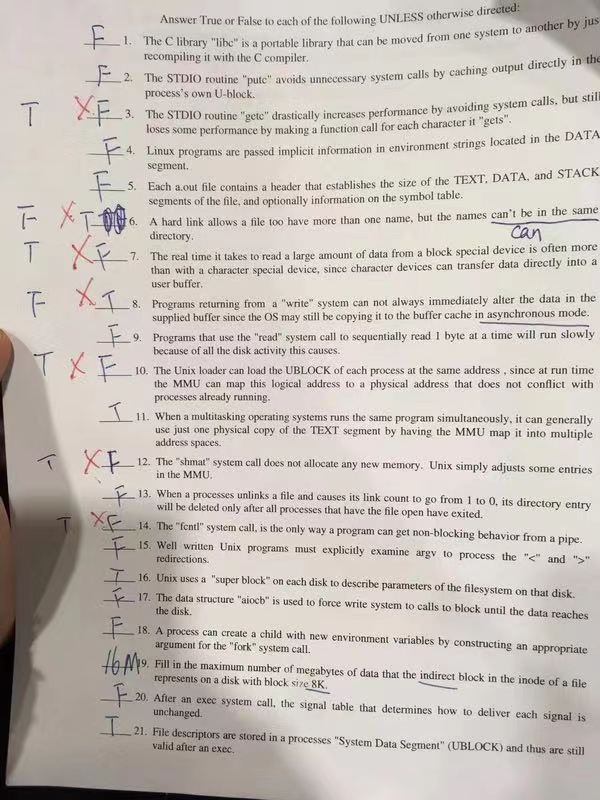 Answer True or False to each of the following UNLESS otherwise directed:
F 1. The C library "libc" is a portable library that can be moved from one system to another by jus
recompiling it with the C compiler.
F 2. The STDIO routine "putc" avoids unnecessary system calls by caching output directly in the
process's own U-block.
T X F 3. The STDIO routine "getc" drastically increases performance by avoiding system calls, but still
loses some performance by making a function call for each character it "gets".
F 4. Linux programs are passed implicit information in environment strings located in the DATA
segment.
F 5. Each a.out file contains a header that establishes the size of the TEXT, DATA, and STACK
segments of the file, and optionally information on the symbol table.
F X T 6. A hard link allows a file too have more than one name, but the names can't be in the same
directory. can
T X F 7. The real time it takes to read a large amount of data from a block special device is often more
than with a character special device, since character devices can transfer data directly into a
user buffer.
F X T 8. Programs returning from a "write" system can not always immediately alter the data in the
supplied buffer since the OS may still be copying it to the buffer cache in asynchronous mode.
F 9. Programs that use the "read" system call to sequentially read 1 byte at a time will run slowly
because of all the disk activity this causes.
T X F 10. The Unix loader can load the UBLOCK of each process at the same address , since at run time
the MMU can map this logical address to a physical address that does not conflict with
processes already running.
T 11. When a multitasking operating systems runs the same program simultaneously, it can generally
use just one physical copy of the TEXT segment by having the MMU map it into multiple
address spaces.
T X F 12. The "shmat" system call does not allocate any new memory. Unix simply adjusts some entries
in the MMU.
F 13. When a processes unlinks a file and causes its link count to go from 1 to 0, its directory entry
will be deleted only after all processes that have the file open have exited.
T X F 14. The "fcntl" system call, is the only way a program can get non-blocking behavior from a pipe.
F 15. Well written Unix programs must explicitly examine argv to process the "<" and ">"
redirections.
T 16. Unix uses a "super block" on each disk to describe parameters of the filesystem on that disk.
F 17. The data structure "aiocb" is used to force write system to calls to block until the data reaches
the disk.
F 18. A process can create a child with new environment variables by constructing an appropriate
argument for the "fork" system call.
16M 19. Fill in the maximum number of megabytes of data that the indirect block in the inode of a file
represents on a disk with block size 8K.
F 20. After an exec system call, the signal table that determines how to deliver each signal is
unchanged.
T 21. File descriptors are stored in a processes "System Data Segment" (UBLOCK) and thus are still
valid after an exec.